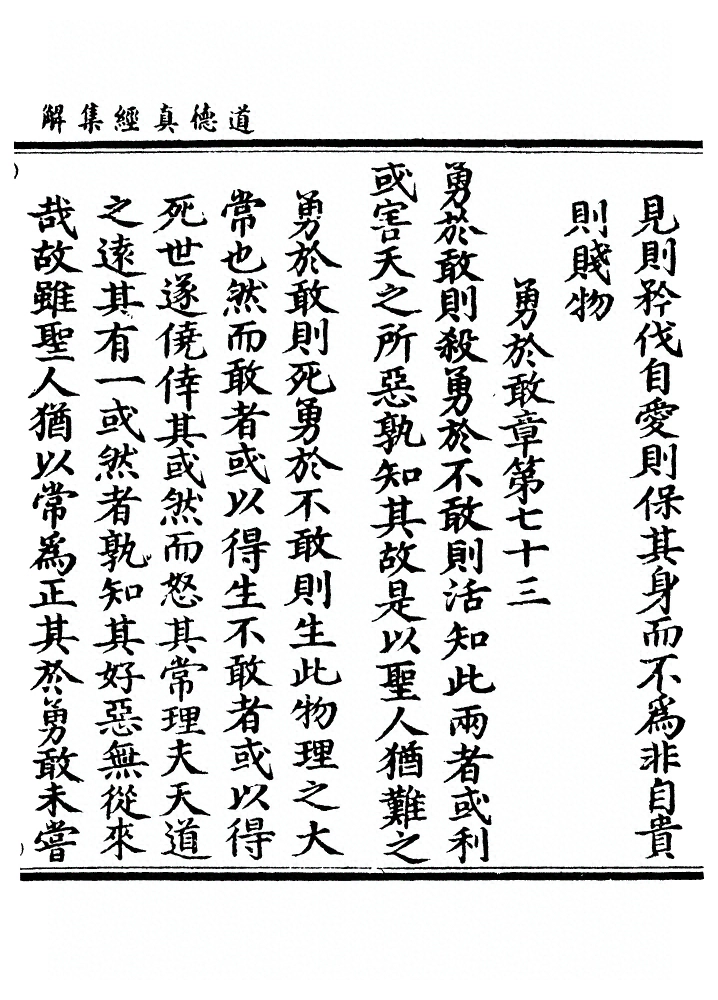 道德真經集解
見則矜伐自愛則保其身而不爲非自貴
則賤物
勇於敢章第七十三
勇於敢則殺勇於不敢則活知此兩者或利
或害天之所惡孰知其故是以聖人猶難之
勇於敢則死勇於不敢則生此物理之大
常也然而敢者或以得生不敢者或以得
死世遂僥倖其或然而怒其常理夫天道
之遠其有一或然者孰知其好惡無從來
哉故雖聖人猶以常爲正其於勇敢未嘗